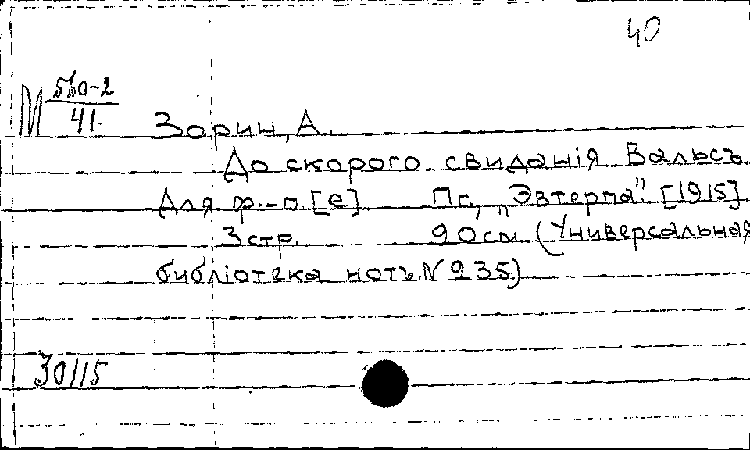 40
М 550-2
41
Зорин, А.
До скораго свиданія Вальсъ
для ф.-п. [е] Пг., "Эвтерпа". [1915]
3 стр. 20 см. (Универсальная
библіотека нотъ № 235.)
30115